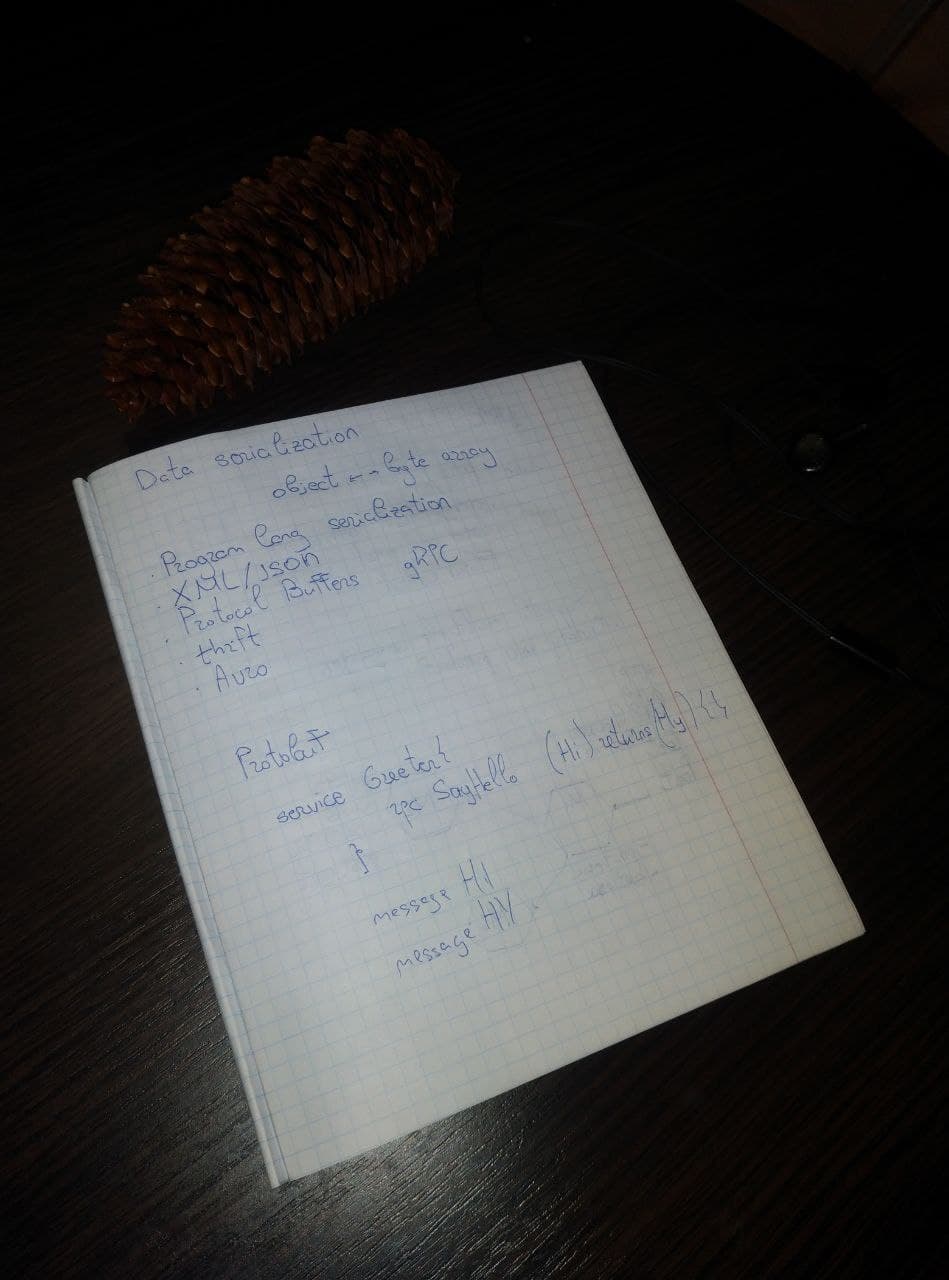 Data serialization
object ← → byte array
· Program lang serialization
· XML/JSON
· Protocol Buffers gRPC
· thrift
· Avro
Protobuf
service Greeter{
rpc SayHello (Hi) returns (Hy) {}
}
message HI
message HY